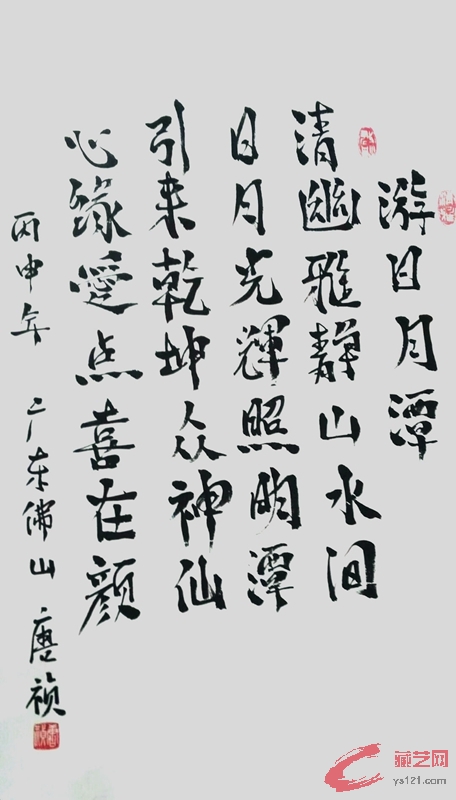 游日月潭
清幽雅静山水间
日月光辉照明潭
引来乾坤众神仙
心缘爱点喜在颜
丙申年 广东佛山 唐祯
藏艺网
ys121.com